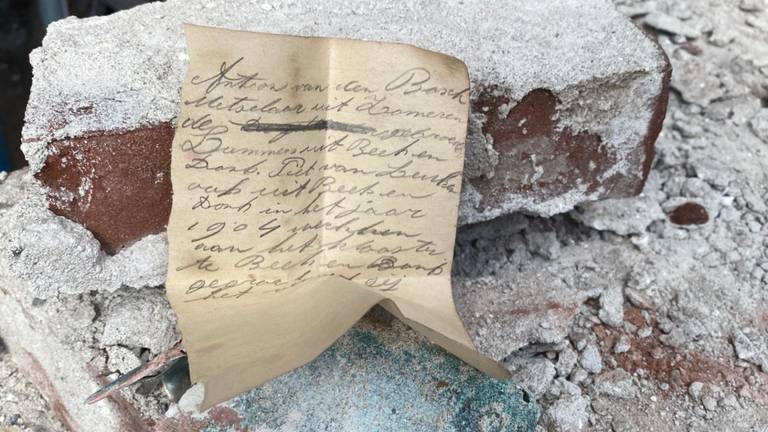 Anton van den Bosch
Metselaar uit Zomeren
de gebroeders
Lammers uit Beek en
Donk. Piet van
ook uit Beek en
Donk in het jaar
1904 werkzaam
aan het klooster
te Beek en Donk
het